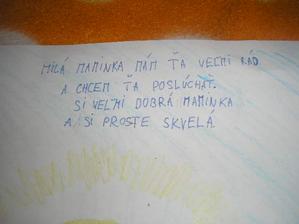 MILÁ MAMINKA MÁM ŤA VEĽMI RÁD
A CHCEM ŤA POSLÚCHAŤ.
SI VEĽMI DOBRÁ MAMINKA
A SI PROSTE SKVELÁ